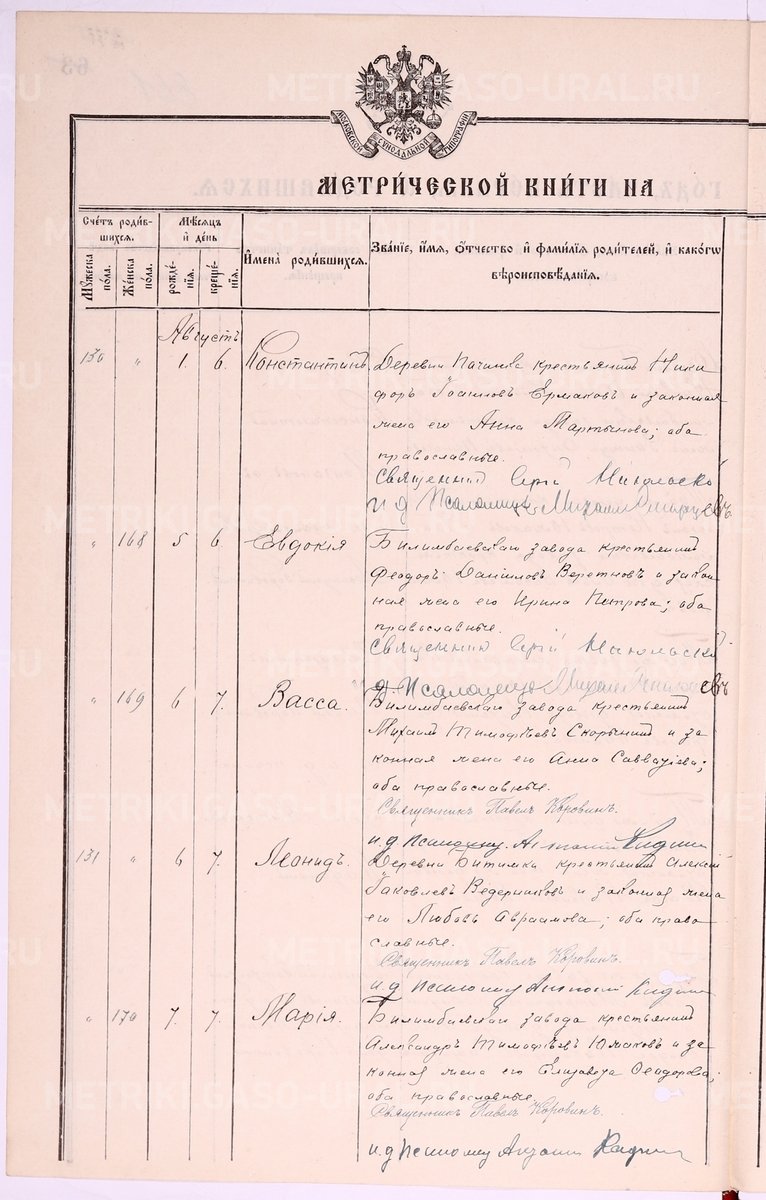 МОСКОВСКОЙ СѴНОДАЛЬНОЙ ТИПОГРАФІИ
МЕТРИ́ЧЕСКОЙ КНИ́ГИ НА
Сче́тъ роди́в-
шихся.
Му́жеска
по́ла.
Же́нска
по́ла.
Мѣ́сяцъ
и҆ де́нь
рожде́-
нїѧ.
креще́-
нїѧ.
И҆мена̀ роди́вшихся.
Зва́нїе, и҆́мѧ, ѻ҆́тчество и҆ фами́лїѧ роди́телей, и҆ како́гѡ
вѣроисповѣ́данїѧ.
Августъ
130 " 1. 6. Константинъ Деревни Починка крестьянинъ Ники
форъ Іоанновъ Ермаковъ и законная
жена его Анна Мартынова; оба
православные.
Священник Сергій Никольской
и д Псаломщ Михаилъ
" 168 5 6 Евдокія Билимбаевскаго завода крестьянинъ
Феодоръ Даниловъ и закон
ная жена его Ирина Петрова; оба
православные.
Священник Сергій Никольской
и д. Псаломщ Михаилъ
" 169 6 7. Васса. Билимбаевскаго завода крестьянинъ
Михаилъ Тимофѣевъ Скорынинъ и за
конная жена его Анна Савватіева;
оба православные.
Священникъ Павелъ Коровинъ.
и. д Псаломщ. Антоній
131 " 6 7. Леонидъ. Деревни Битимки крестьянинъ Алексѣй
Іаковлевъ Ведерниковъ и законная жена
его Любовь Авраамова; оба право
славные.
Священникъ Павелъ Коровинъ.
и. д Псаломщ Антоній
" 170 7. 7. Марія. Билимбаевскаго завода крестьянинъ
Александръ Тимофѣевъ Юмаковъ и за
конная жена его Елизавета Феодорова;
оба православные.
Священникъ Павелъ Коровинъ.
и. д Псаломщ Антоній
METRIKI.GASO-URAL.RU